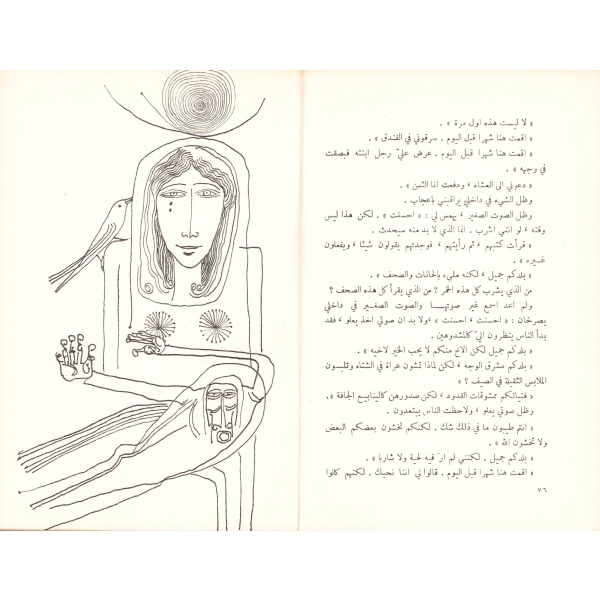 « لا ليست هذه اول مرة » .
« اقمت هنا شهرا قبل اليوم . سرقوني في الفندق » .
« اقمت هنا شهرا قبل اليوم . عرض عليّ رجل ابنته فبصقت
في وجهه » .
« دعوني الى العشاء ، ودفعت انا الثمن » .
وظل الشيء في داخلي يراقبني باعجاب .
وظل الصوت الصغير ، يهمس لي : « احسنت » . لكن هذا ليس
وقته ، لو انني اشرب . انما الذي لا بد منه سيحدث .
« قرأت كتبهم ، ثم رأيتهم ، فوجدتهم يقولون شيئا ، ويفعلون
غيره » .
« بلدكم جميل ، لكنه مليء بالحانات والصحف » .
من الذي يشرب كل هذه الخمر ؟ من الذي يقرأ كل هذه الصحف ؟
ولم اعد اسمع غير صوتهما والصوت الصغير في داخلي
يصرخان : « احسنت ، احسنت » ، ولا بد ان صوتي اخذ يعلو ، فقد
بدأ الناس ينظرون اليّ كالمشدوهين .
« بلدكم جميل لكن الاخ منكم لا يحب الخير لاخيه » .
« بلدكم مشرق الوجه ، لكن لماذا تمشون عراة في الشتاء وتلبسون
الملابس الثقيلة في الصيف ؟ »
« فتياتكم ممشوقات القدود ، لكن صدورهن كالينابيع الجافة » .
وظل صوتي يعلو ، ولاحظت الناس يبتعدون .
« انتم طيبون ما في ذلك شك . لكنكم تخشون بعضكم البعض
ولا تخشون الله » .
« بلدكم جميل . لكنني لم ار فيه لحية ولا شاربا » .
« اقمت هنا شهرا قبل اليوم . قالوا لي اننا نحبك . لكنهم كانوا
٧٦